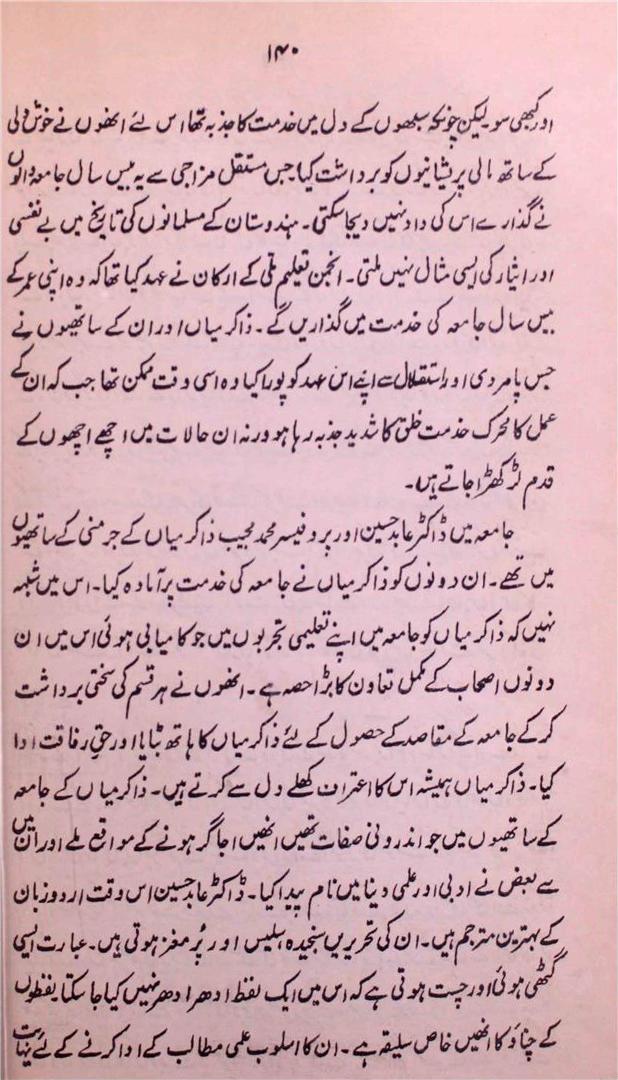 ۱۴۰
اور کبھی سو۔ لیکن چونکہ سبھوں کے دل میں خدمت کا جذبہ تھا اس لئے انھوں نے خوش دلی
کے ساتھ مالی پریشانیوں کو برداشت کیا جس مستقل مزاجی سے یہ بیس سال جامعہ والوں
نے گذارے اس کی داد نہیں دیجا سکتی۔ ہندوستان کے مسلمانوں کی تاریخ میں بے نفسی
اور ایثار کی ایسی مثال نہیں ملتی۔ انجمن تعلیم ملی کے ارکان نے عہد کیا تھا کہ وہ اپنی عمر کے
بیس سال جامعہ کی خدمت میں گذاریں گے۔ ذاکر میاں اور ان کے ساتھیوں نے
جس پامردی اور استقلال سے اپنے اس عہد کو پورا کیا وہ اسی وقت ممکن تھا جب کہ ان کے
عمل کا محرک خدمت خلق کا شدید جذبہ رہا ہو ورنہ ان حالات میں اچھے اچھوں کے
قدم لڑکھڑا جاتے ہیں۔
جامعہ میں ڈاکٹر عابد حسین اور پروفیسر محمد مجیب ذاکر میاں کے جرمنی کے ساتھیوں
میں تھے۔ ان دونوں کو ذاکر میاں نے جامعہ کی خدمت پر آمادہ کیا۔ اس میں شبہہ
نہیں کہ ذاکر میاں کو جامعہ میں اپنے تعلیمی تجربوں میں جو کامیابی ہوئی اس میں ان
دونوں اصحاب کے مکمل تعاون کا بڑا حصہ ہے۔ انھوں نے ہر قسم کی سختی برداشت
کر کے جامعہ کے مقاصد کے حصول کے لئے ذاکر میاں کا ہاتھ بٹایا اور حقِ رفاقت ادا
کیا۔ ذاکر میاں ہمیشہ اس کا اعتراف کھلے دل سے کرتے ہیں۔ ذاکر میاں کے جامعہ
کے ساتھیوں میں جو اندرونی صفات تھیں انھیں اجاگر ہونے کے مواقع ملے اور ان میں
سے بعض نے ادبی اور علمی دینا میں نام پیدا کیا۔ ڈاکٹر عابد حسین اس وقت اردو زبان
کے بہترین مترجم ہیں۔ ان کی تحریریں سنجیدہ سلیس اور پُر مغز ہوتی ہیں۔ عبارت ایسی
گٹھی ہوئی اور چست ہوتی ہے کہ اس میں ایک لفظ ادھر ادھر نہیں کیا جا سکتا لفظوں
کے چناؤ کا انھیں خاص سلیقہ ہے۔ ان کا اسلوب علمی مطالب کے ادا کرنے کے لئے نہایت